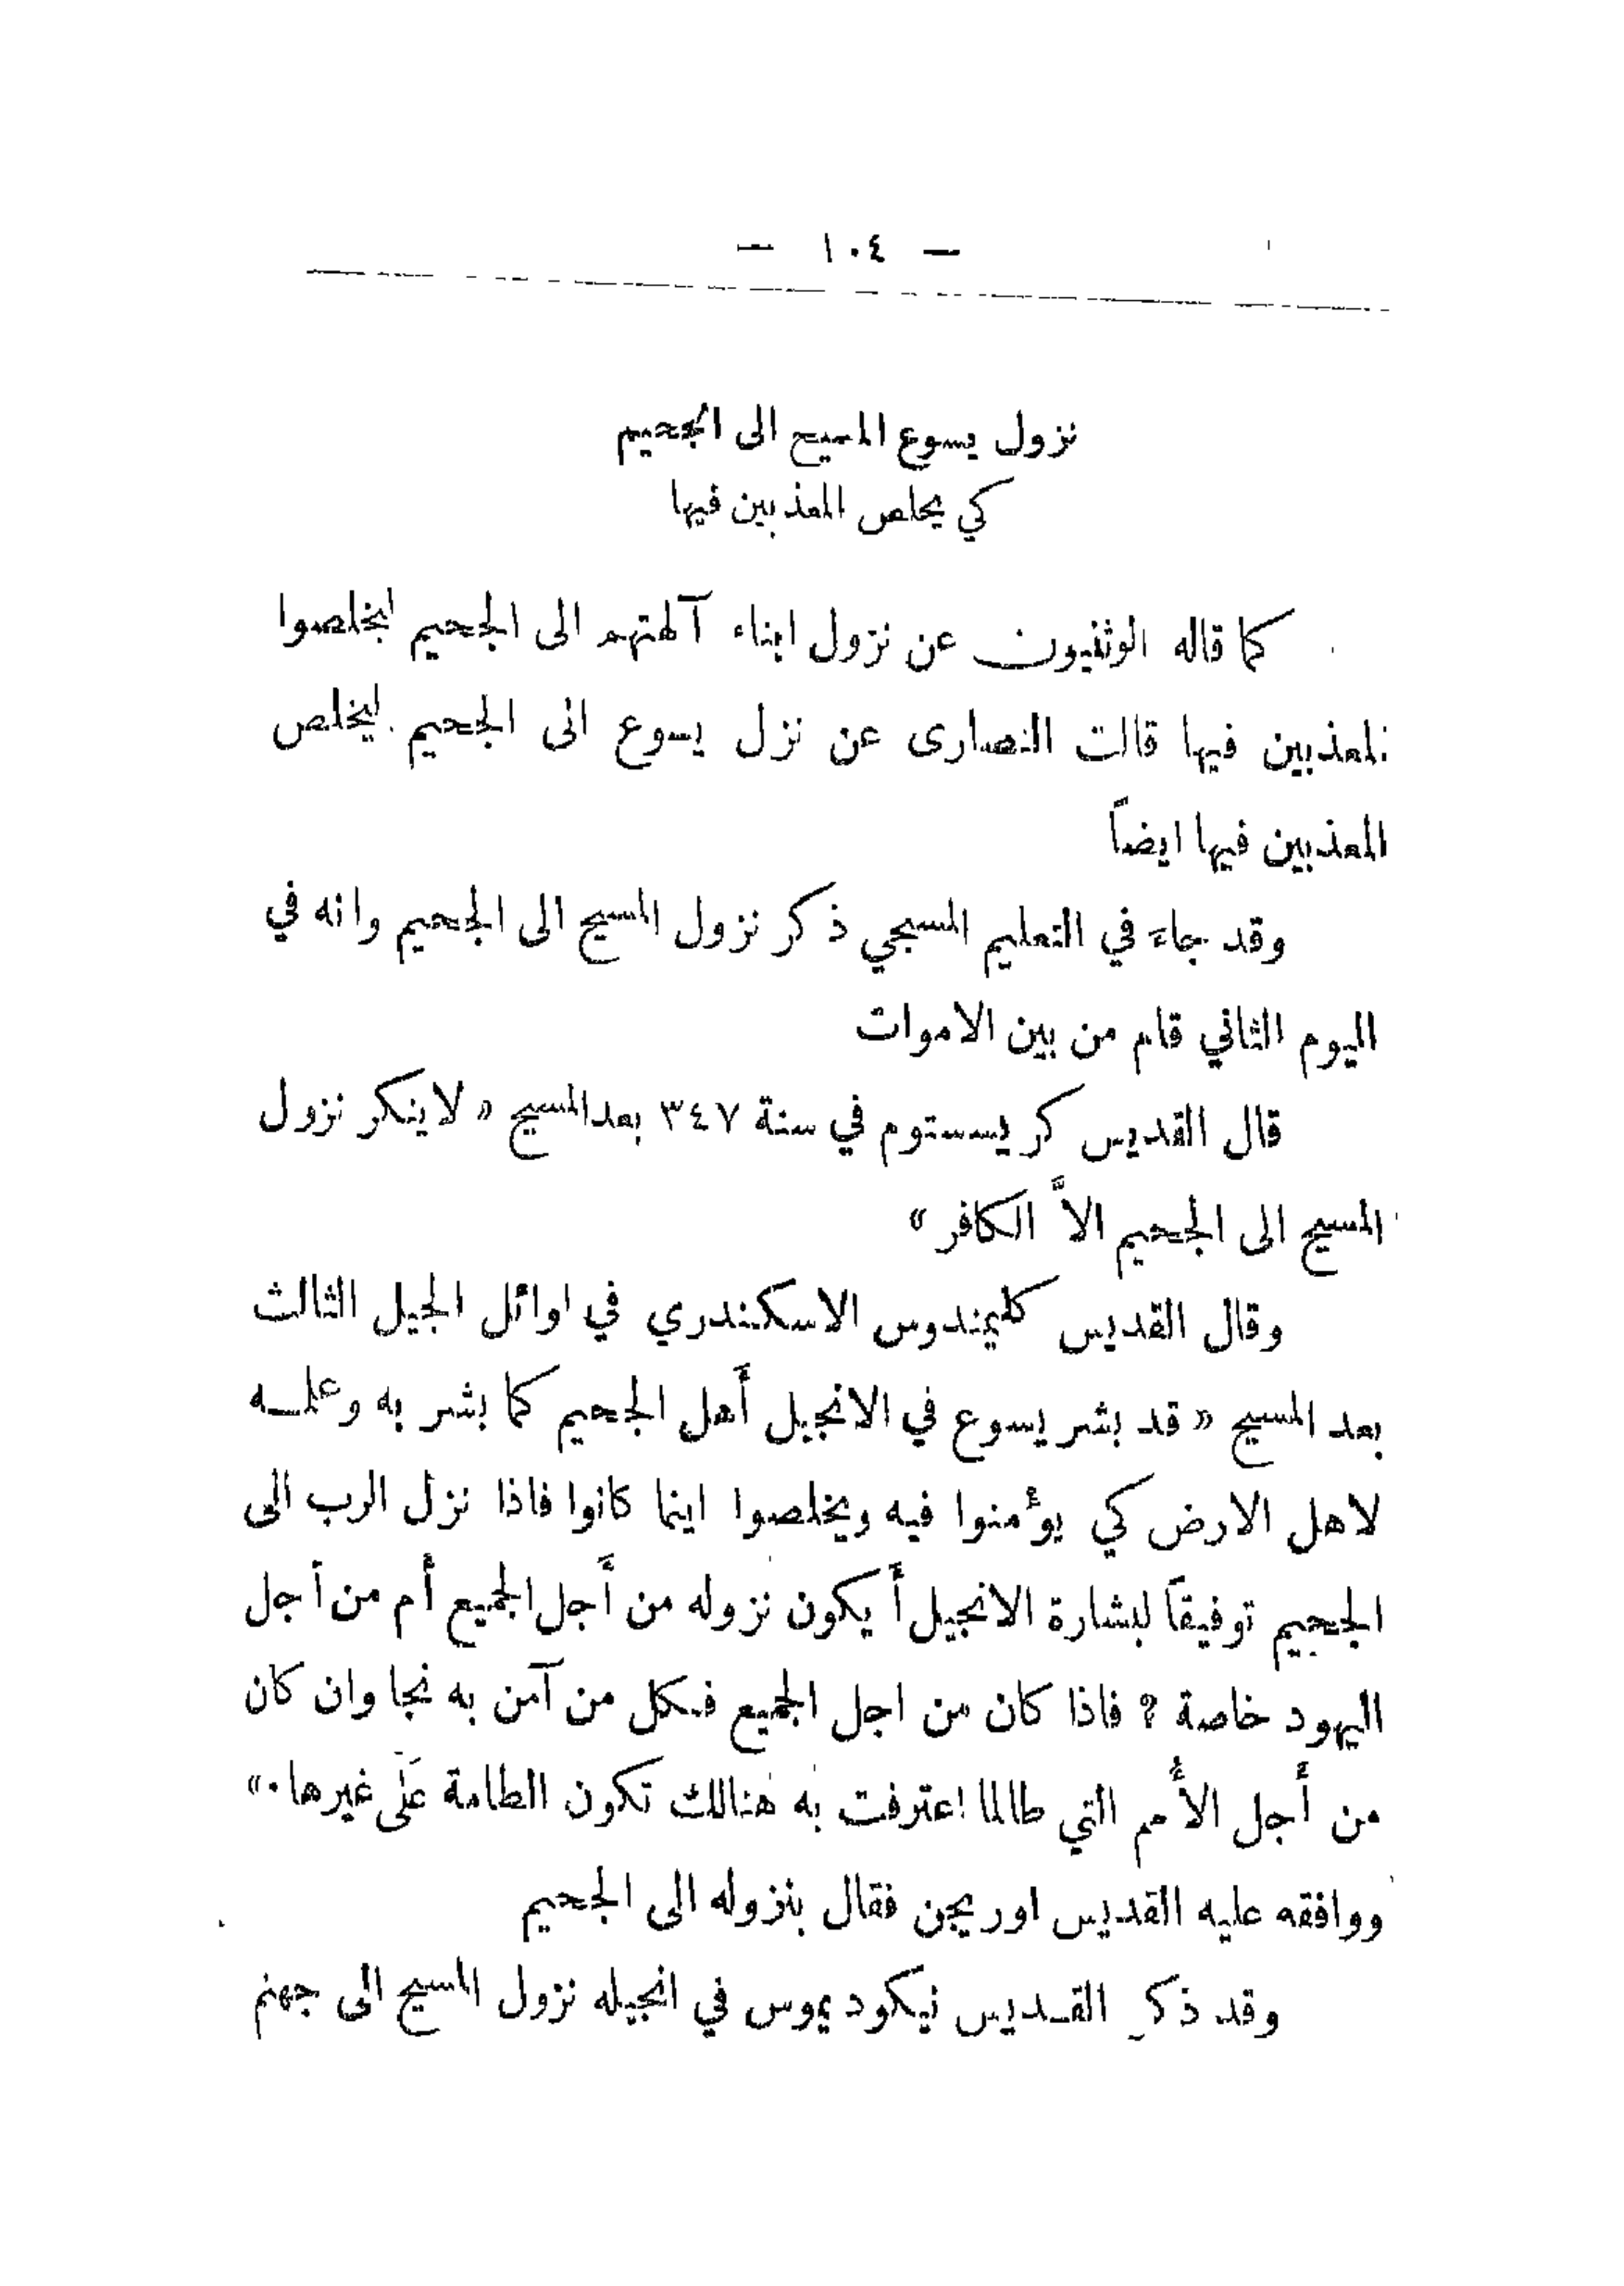 — ١٠٤ —
نزول يسوع المسيح الى الجحيم
كي يخلص المعذبين فيها
كما قاله الوثنيون عن نزول ابناء آلهتهم الى الجحيم ليخلصوا
المعذبين فيها قالت النصارى عن نزل يسوع الى الجحيم ليخلص
المعذبين فيها ايضاً
وقد جاء في التعليم المسيحي ذكر نزول المسيح الى الجحيم وانه في
اليوم الثاني قام من بين الاموات
قال القديس كريسستوم في سنة ٣٤٧ بعد المسيح « لا ينكر نزول
المسيح الى الجحيم الاَّ الكافر »
وقال القديس كليمندوس الاسكندري في اوائل الجيل الثالث
بعد المسيح « قد بشر يسوع في الانجيل أَهل الجحيم كما بشر به وعلمه
لاهل الارض كي يؤمنوا فيه ويخلصوا اينما كانوا فاذا نزل الرب الى
الجحيم توفيقاً لبشارة الانجيل أَ يكون نزوله من أَجل الجميع أَم من أجل
اليهود خاصة ? فاذا كان من اجل الجميع فكل من آمن به نجا وان كان
من أَجل الأُمم التي طالما اعترفت به هنالك تكون الطامة عَلَى غيرها . »
ووافقه عليه القديس اوريجن فقال بنزوله الى الجحيم
وقد ذكر القديس نيكوديموس في انجيله نزول المسيح الى جهنم